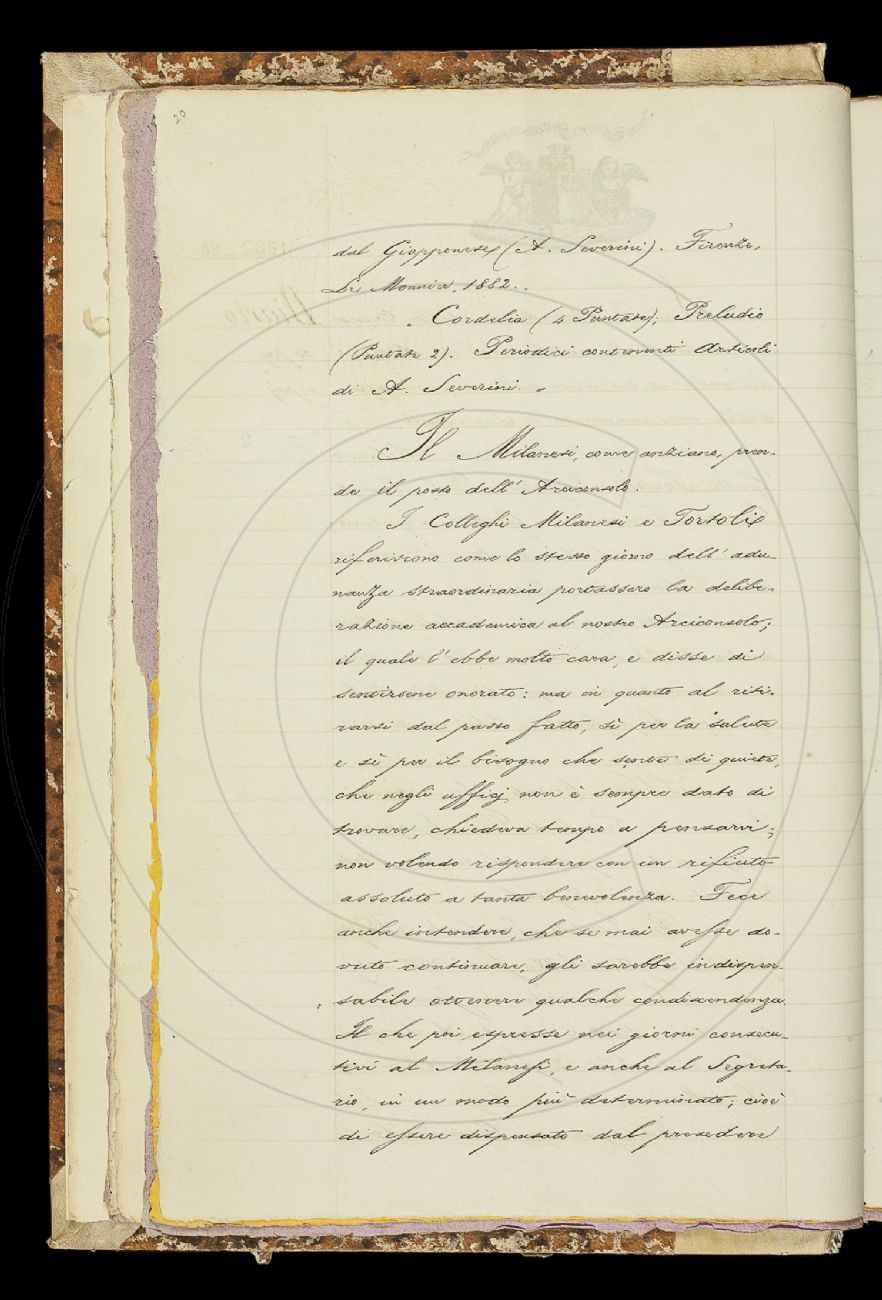 20
dal Giapponese (A. Severini). Firenze,
Le Monnier, 1882.
Cordelia (4 Puntate); Preludio
(Puntate 2). Periodici contenenti Articoli
di A. Severini.
Il Milanesi, come anziano, pren-
de il posto dell' Arciconsolo.
I Colleghi Milanesi e Tortoli
riferiscono come lo stesso giorno dell' adu-
nanza straordinaria portassero la delibe-
razione accademica al nostro Arciconsolo;
il quale l' ebbe molto cara, e disse di
sentirsene onorato: ma in quanto al riti-
rarsi dal passo fatto, sì per la salute
e sì per il bisogno che sente di quiete,
che negli ufficj non è sempre dato di
trovare, chiedeva tempo a pensarvi;
non volendo rispondere con un rifiuto
assoluto a tanta benevolenza. Fece
anche intendere, che se mai avesse do-
vuto continuare, gli sarebbe indispen-
sabile ottenere qualche condiscendenza.
Il che poi espresse nei giorni consecu-
tivi al Milanesi, e anche al Segreta-
rio, in un modo più determinato; cioè
di essere dispensato dal presedere